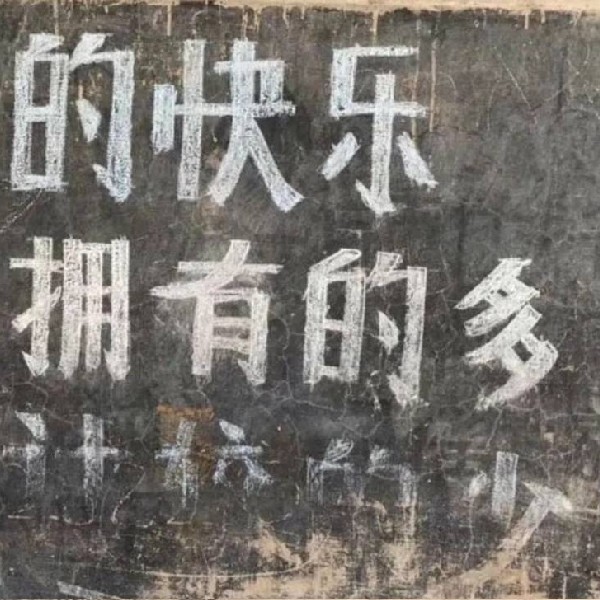 的快乐
拥有的多
计较的少